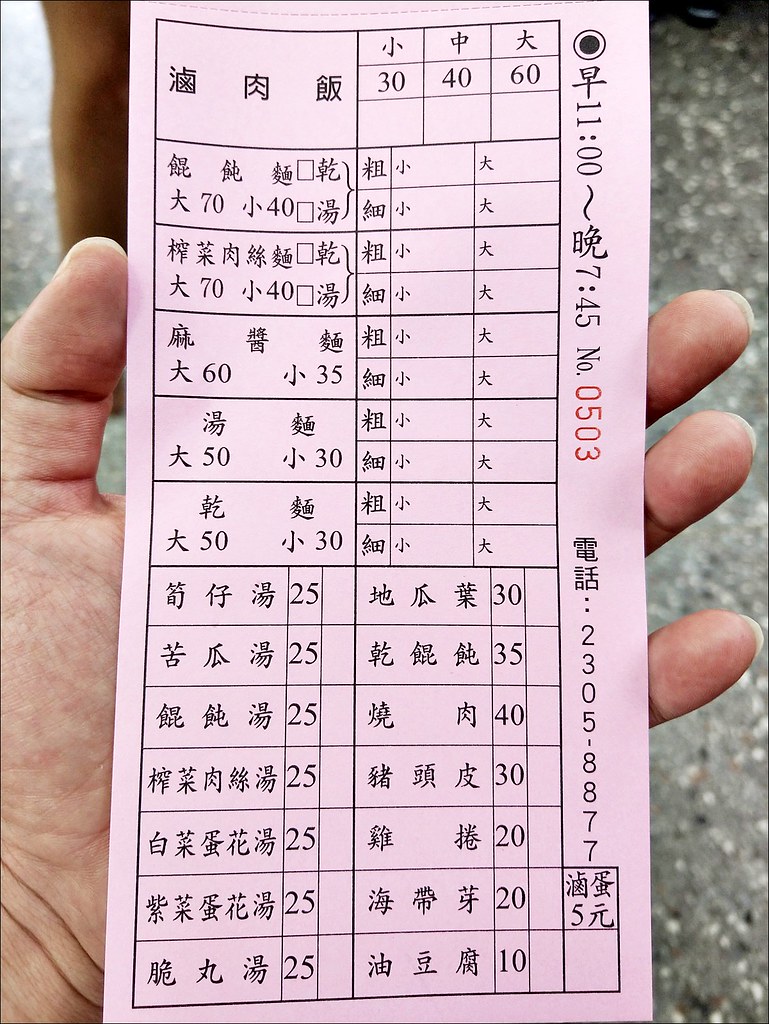 滷肉飯 小 中 大
30 40 60
餛飩麵□乾 粗 小 大
大 70 小 40□湯 細 小 大
榨菜肉絲麵□乾 粗 小 大
大 70 小 40□湯 細 小 大
麻醬麵 粗 小 大
大 60 小 35 細 小 大
湯麵 粗 小 大
大 50 小 30 細 小 大
乾麵 粗 小 大
大 50 小 30 細 小 大
筍仔湯 25 地瓜葉 30
苦瓜湯 25 乾餛飩 35
餛飩湯 25 燒肉 40
榨菜肉絲湯 25 豬頭皮 30
白菜蛋花湯 25 雞捲 20
紫菜蛋花湯 25 海帶芽 20
脆丸湯 25 油豆腐 10
◉早11:00～晚7:45 No. 0503
電話:2305-8877
滷蛋
5元